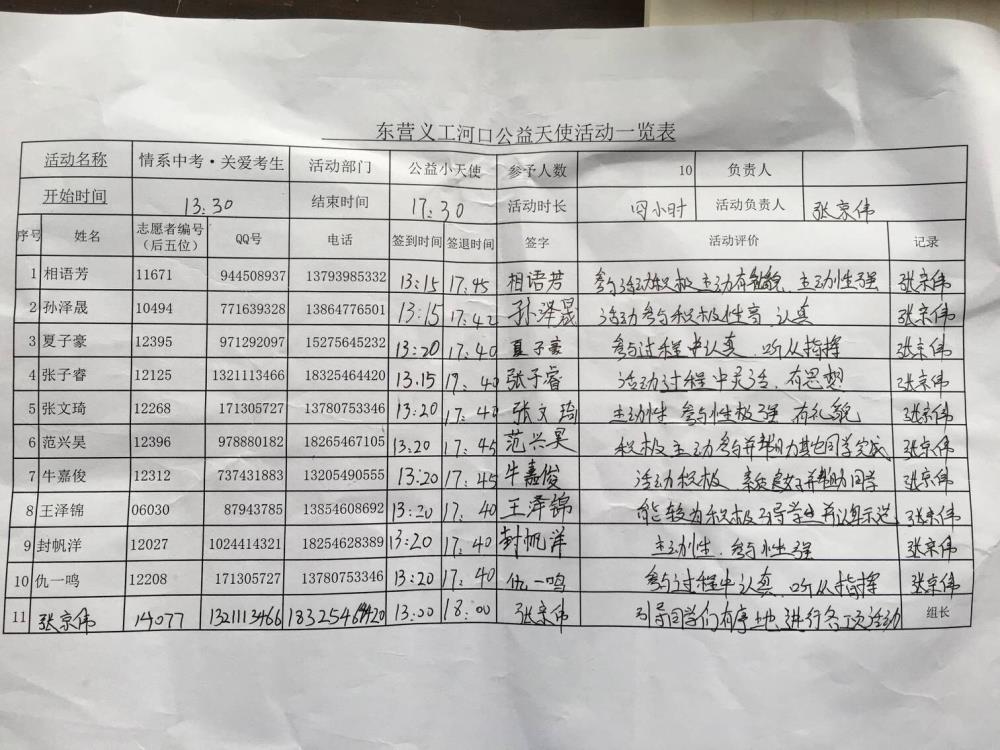 东营义工河口公益天使活动一览表
活动名称 情系中考·关爱考生 活动部门 公益小天使 参予人数 10 负责人
开始时间 13:30 结束时间 17:30 活动时长 四小时 活动负责人 张京伟
序号 姓名 志愿者编号（后五位） QQ号 电话 签到时间 签退时间 签字 活动评价 记录
1 相语芳 11671 944508937 13793985332 13:15 17:45 相语芳 参与活动积极主动有礼貌、主动性强 张京伟
2 孙泽晟 10494 771639328 13864776501 13:15 17:42 孙泽晟 活动参与积极性高,认真 张京伟
3 夏子豪 12395 971292097 15275645232 13:20 17:40 夏子豪 参与过程中认真,听从指挥 张京伟
4 张子睿 12125 1321113466 18325464420 13.15 17:40 张子睿 活动过程中灵活,有思想 张京伟
5 张文琦 12268 171305727 13780753346 13:20 17:40 张文琦 主动性,参与性极强,有礼貌 张京伟
6 范兴昊 12396 978880182 18265467105 13:20 17:45 范兴昊 积极主动参与并帮助其他同学完成 张京伟
7 牛嘉俊 12312 737431883 13205490555 13:20 17:45 牛嘉俊 活动积极,表现良好并帮助同学 张京伟
8 王泽锦 06030 87943785 13854608692 13:20 17:40 王泽锦 能较为积极引导学生并认真 张京伟
9 封帆洋 12027 1024414321 18254628389 13:20 17:40 封帆洋 主动性,参与性强 张京伟
10 仇一鸣 12208 171305727 13780753346 13:20 17:40 仇一鸣 参与过程中认真,听从指挥 张京伟
11 张京伟 14077 1321113466 18325464420 13:00 18:00 张京伟 引导同学们有序地进行各项活动 组长